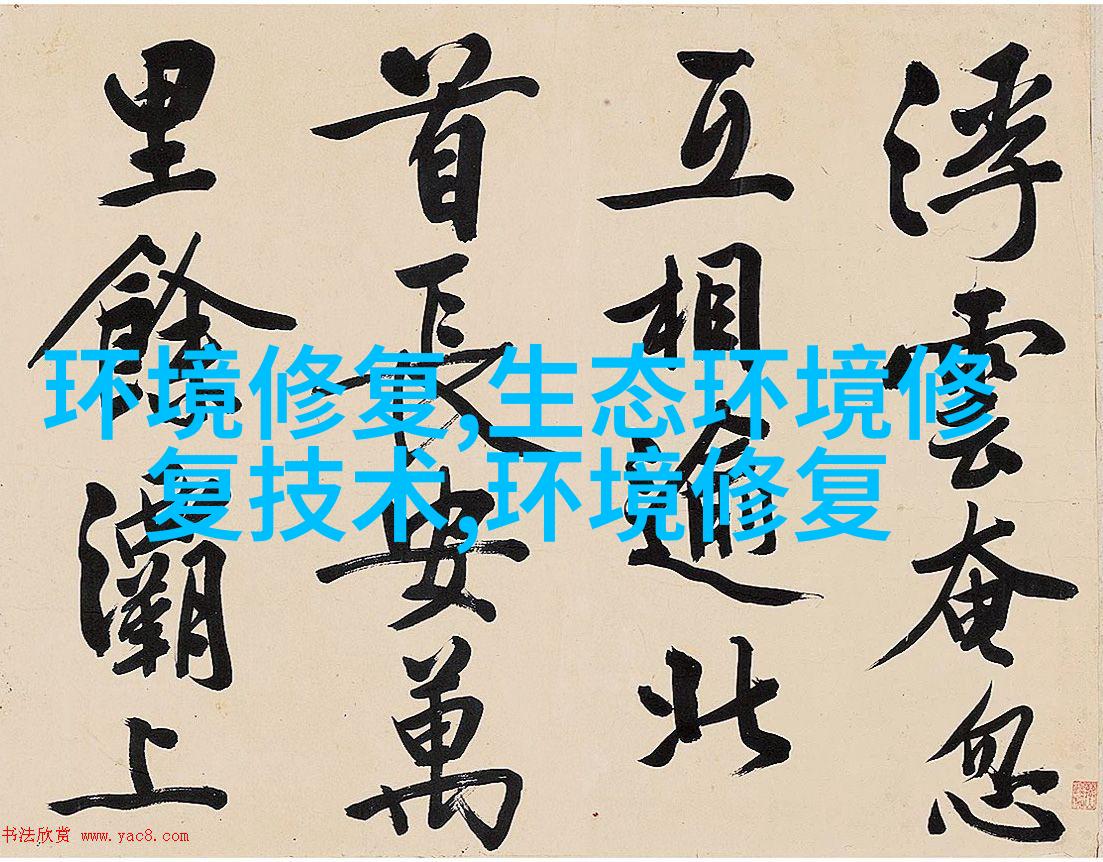 浮雲奄忽
互相逾北
首長安萬
里餘灞上
环境修复,生态环境修
复技术,环境修复
书法欣赏 www.yac8.com